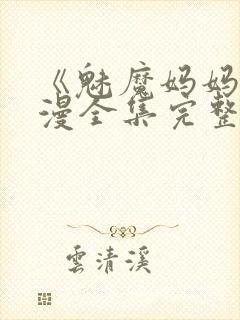 《魅魔妈妈
漫全集完整
雲清溪